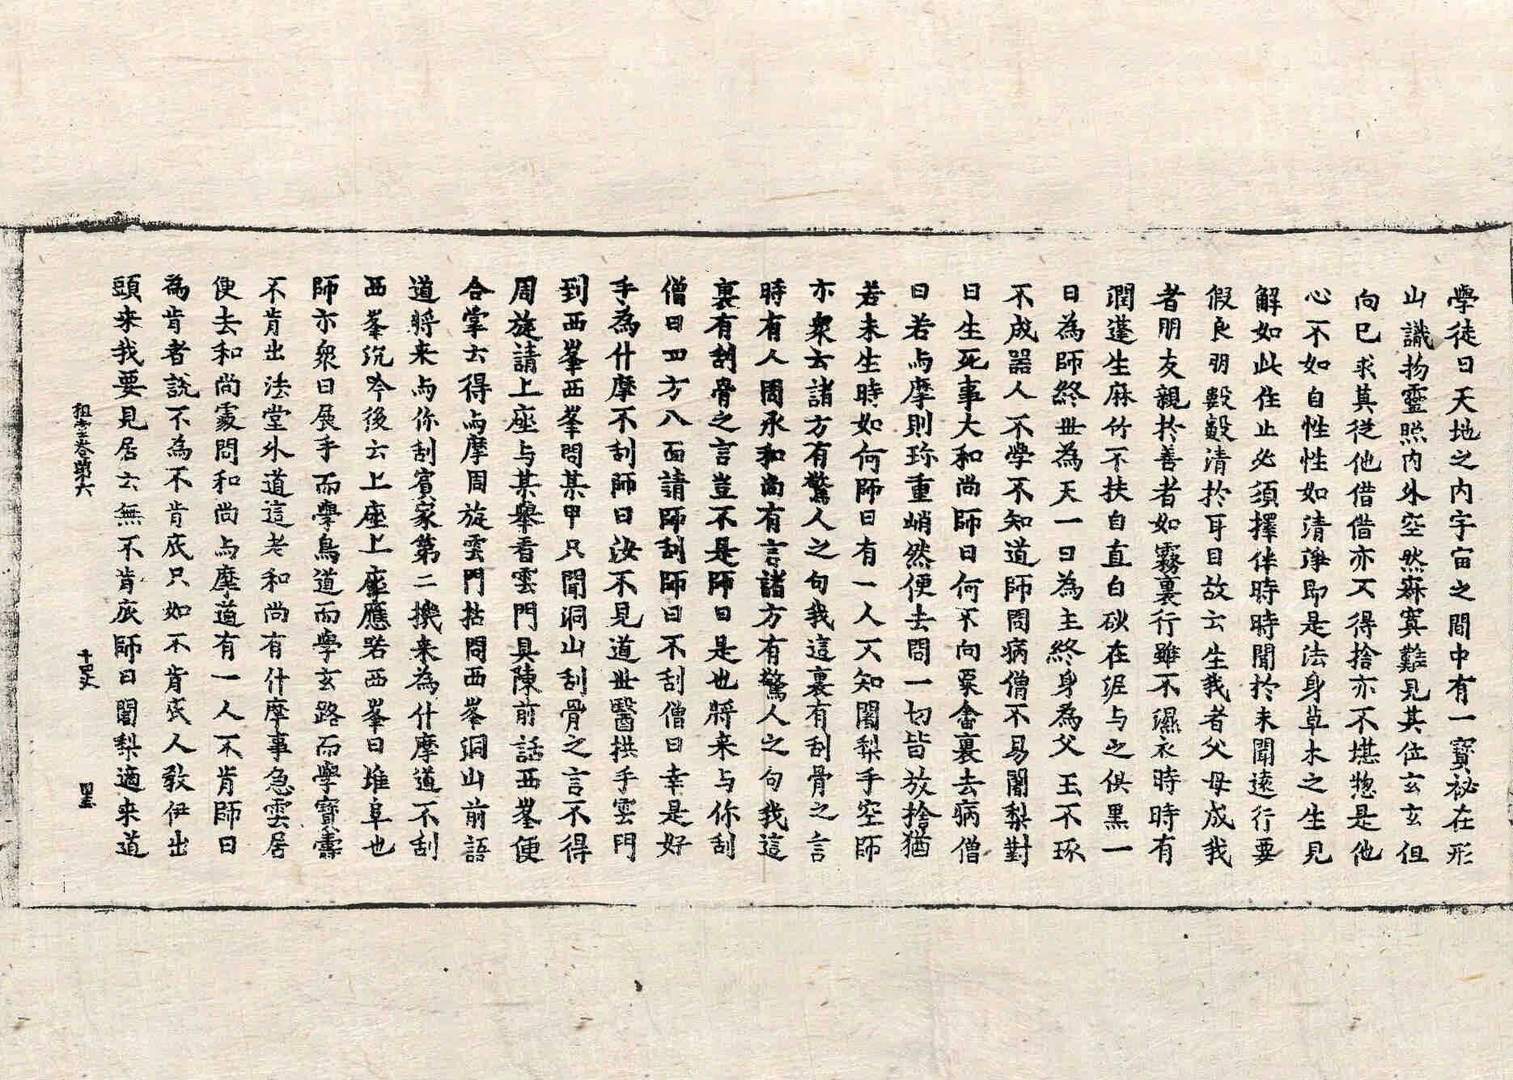 學徒曰天地之內宇宙之間中有一寶秘在形
山識物靈照內外空然寐寞難見其位玄玄但
向己求莫從他借借亦不得捨亦不堪惣是他
心不如自性性如清淨即是法身草木之生見
解如此住止必須擇伴時時聞於未聞遠行要
假良朋數數清於耳目故云生我者父母成我
者朋友親於善者如霧裏行雖不濕衣時時有
潤蓬生麻竹不扶自直白砂在涅与之俱黑一
日為師終世為天一日為主終身為父玉不琢
不成器人不學不知道師問病僧不易闍梨對
曰生死事大和尚師曰何不向粟畬裏去病僧
曰若与摩則珎重峭然便去問一切皆放捨猶
若未生時如何師曰有一人不知闍梨手空師
示衆云諸方有驚人之句我這裏有刮骨之言
時有人問承和尚有言諸方有驚人之句我這
裏有刮骨之言豈不是師曰是也將来与你刮
僧曰四方八面請師刮師曰不刮僧曰幸是好
手為什摩不刮師曰汝不見道世醫拱手雲門
到西峯西峯問某甲只聞洞山刮骨之言不得
周旋請上座与某舉看雲門具陳前話西峯便
合掌云得与摩周旋雲門拈問西峯洞山前語
道將来与你刮賓家第二機来為什摩道不刮
西峯沉吟後云上座上座應喏西峯曰堆阜也
師示衆曰展手而學鳥道而學玄路而學寶壽
不肯出法堂外道這老和尚有什摩事急雲居
便去和尚處問和尚与摩道有一人不肯師曰
為肯者說不為不肯底只如不肯底人教伊出
頭来我要見居云無不肯底師曰闍梨適来道
祖堂卷第六 十四丈 四玉